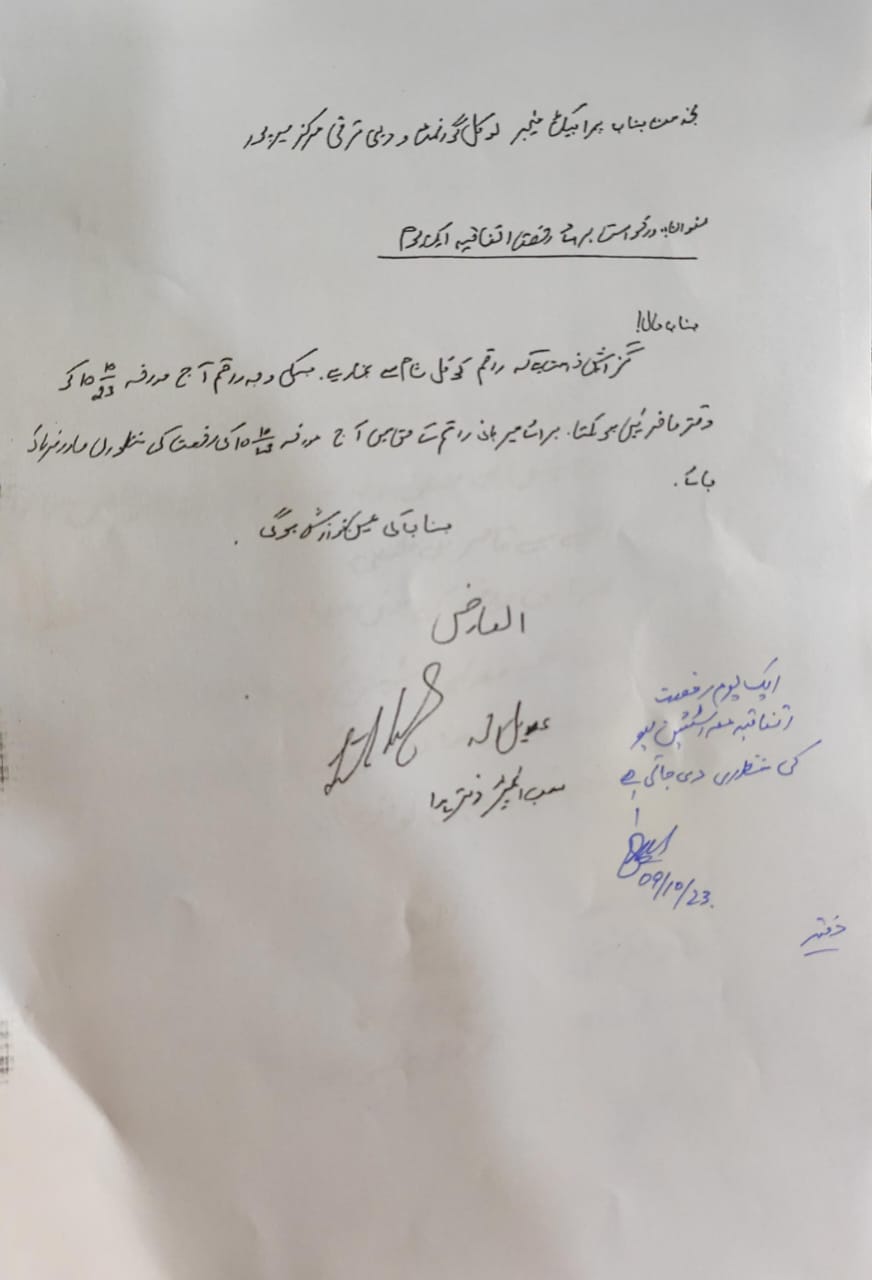 بخدمت جناب پراجیکٹ منیجر لوکل گورنمنٹ و دیہی ترقی مرکز میرپور
عنوان:۔ درخواست برائے رخصت اتفاقیہ ایک یوم
جناب عالی!
گزارش خدمت ہے کہ راقم کو کل شام سے بخار ہے۔ جسکی وجہ راقم آج مورخہ کو
دفتر حاضر نہیں ہو سکتا۔ برائے مہربانی راقم کے حق میں آج مورخہ کی رخصت کی منظوری صادر فرمائی
جائے۔
جناب کی عین نوازش ہوگی۔
العارض
سب انجینئر دفتر ہذا
ایک یوم رخصت
اتفاقیہ معہ اسٹیشن لیو
کی منظوری دی جاتی ہے
09/10/23.
دفتر